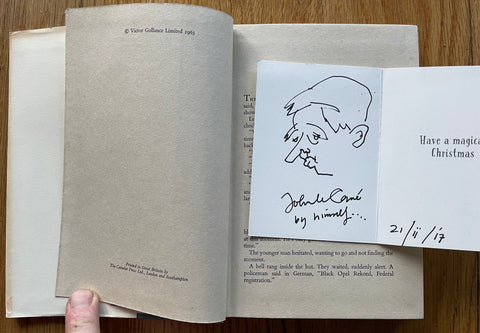 © Victor Gollancz Limited 1963
Printed in Great Britain by
The Camelot Press Ltd., London and Southampton
said,
John le Carré
by himself...
Have a magica
Christmas
21/ii/17
The younger man hesitated, wanting to go and not finding the
moment.
A bell rang inside the hut. They waited, suddenly alert. A
policeman said in German, "Black Opel Rekord, Federal
registration."